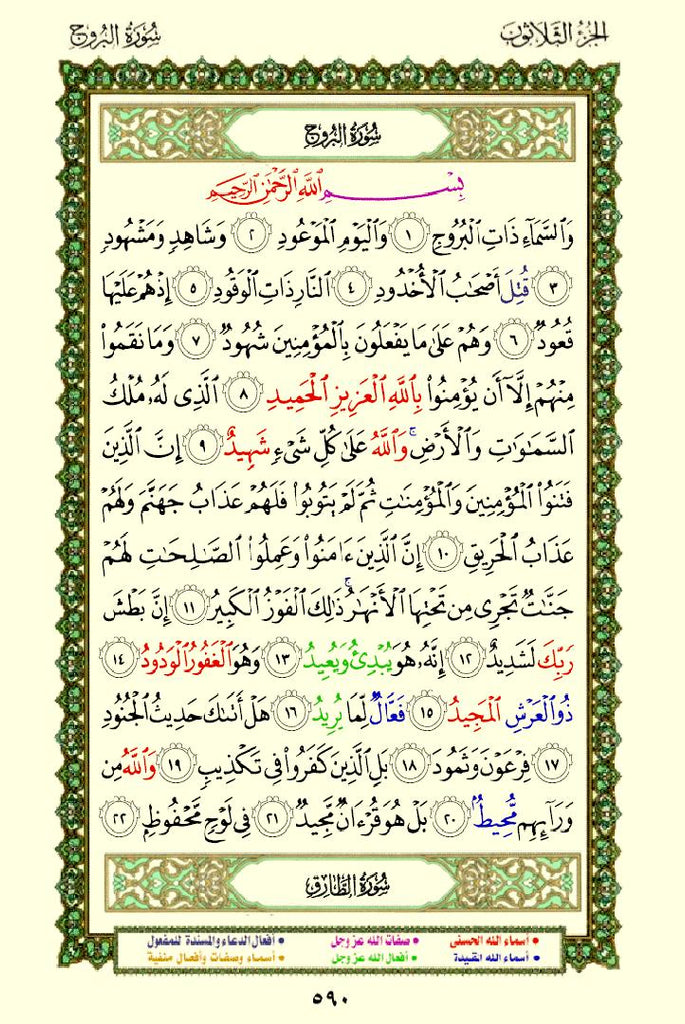 الجزء الثلاثون
سورة البروج
سُورَةُ البُرُوجِ
بِسْمِ اللَّهِ الرَّحْمَٰنِ الرَّحِيمِ
وَالسَّمَاءِ ذَاتِ الْبُرُوجِ ١ وَالْيَوْمِ الْمَوْعُودِ ٢ وَشَاهِدٍ وَمَشْهُودٍ
٣ قُتِلَ أَصْحَابُ الْأُخْدُودِ ٤ النَّارِ ذَاتِ الْوَقُودِ ٥ إِذْ هُمْ عَلَيْهَا
قُعُودٌ ٦ وَهُمْ عَلَىٰ مَا يَفْعَلُونَ بِالْمُؤْمِنِينَ شُهُودٌ ٧ وَمَا نَقَمُوا
مِنْهُمْ إِلَّا أَن يُؤْمِنُوا بِاللَّهِ الْعَزِيزِ الْحَمِيدِ ٨ الَّذِي لَهُ مُلْكُ
السَّمَاوَاتِ وَالْأَرْضِ ۚ وَاللَّهُ عَلَىٰ كُلِّ شَيْءٍ شَهِيدٌ ٩ إِنَّ الَّذِينَ
فَتَنُوا الْمُؤْمِنِينَ وَالْمُؤْمِنَاتِ ثُمَّ لَمْ يَتُوبُوا فَلَهُمْ عَذَابُ جَهَنَّمَ وَلَهُمْ
عَذَابُ الْحَرِيقِ ١٠ إِنَّ الَّذِينَ ءَامَنُوا وَعَمِلُوا الصَّالِحَاتِ لَهُمْ
جَنَّاتٌ تَجْرِي مِن تَحْتِهَا الْأَنْهَارُ ۚ ذَٰلِكَ الْفَوْزُ الْكَبِيرُ ١١ إِنَّ بَطْشَ
رَبِّكَ لَشَدِيدٌ ١٢ إِنَّهُ هُوَ يُبْدِئُ وَيُعِيدُ ١٣ وَهُوَ الْغَفُورُ الْوَدُودُ ١٤
ذُو الْعَرْشِ الْمَجِيدُ ١٥ فَعَّالٌ لِّمَا يُرِيدُ ١٦ هَلْ أَتَاكَ حَدِيثُ الْجُنُودِ
١٧ فِرْعَوْنَ وَثَمُودَ ١٨ بَلِ الَّذِينَ كَفَرُوا فِي تَكْذِيبٍ ١٩ وَاللَّهُ مِن
وَرَائِهِم مُّحِيطٌ ٢٠ بَلْ هُوَ قُرْءَانٌ مَّجِيدٌ ٢١ فِي لَوْحٍ مَّحْفُوظٍ ٢٢
سُورَةُ الطَّارِقِ
• أسماء الله الحسنى • صفات الله عز وجل • أفعال الدعاء والمسندة للمفعول
• أسماء الله المقيدة • أفعال الله عز وجل • أسماء وصفات وأفعال منفية
٥٩٠